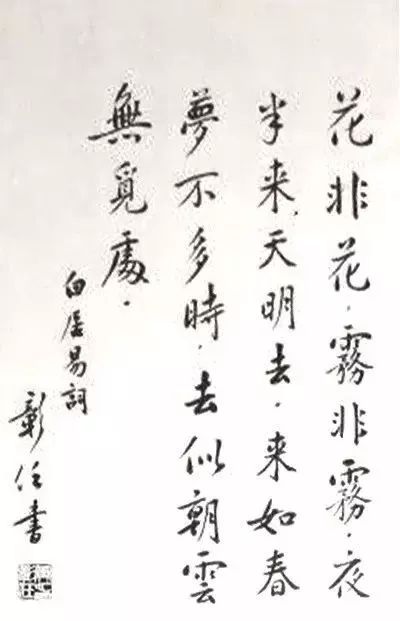 花非花．霧非霧．夜
半来，天明去．来如春
夢不多時．去似朝雲
無覓處．
白居易詞
彰任書